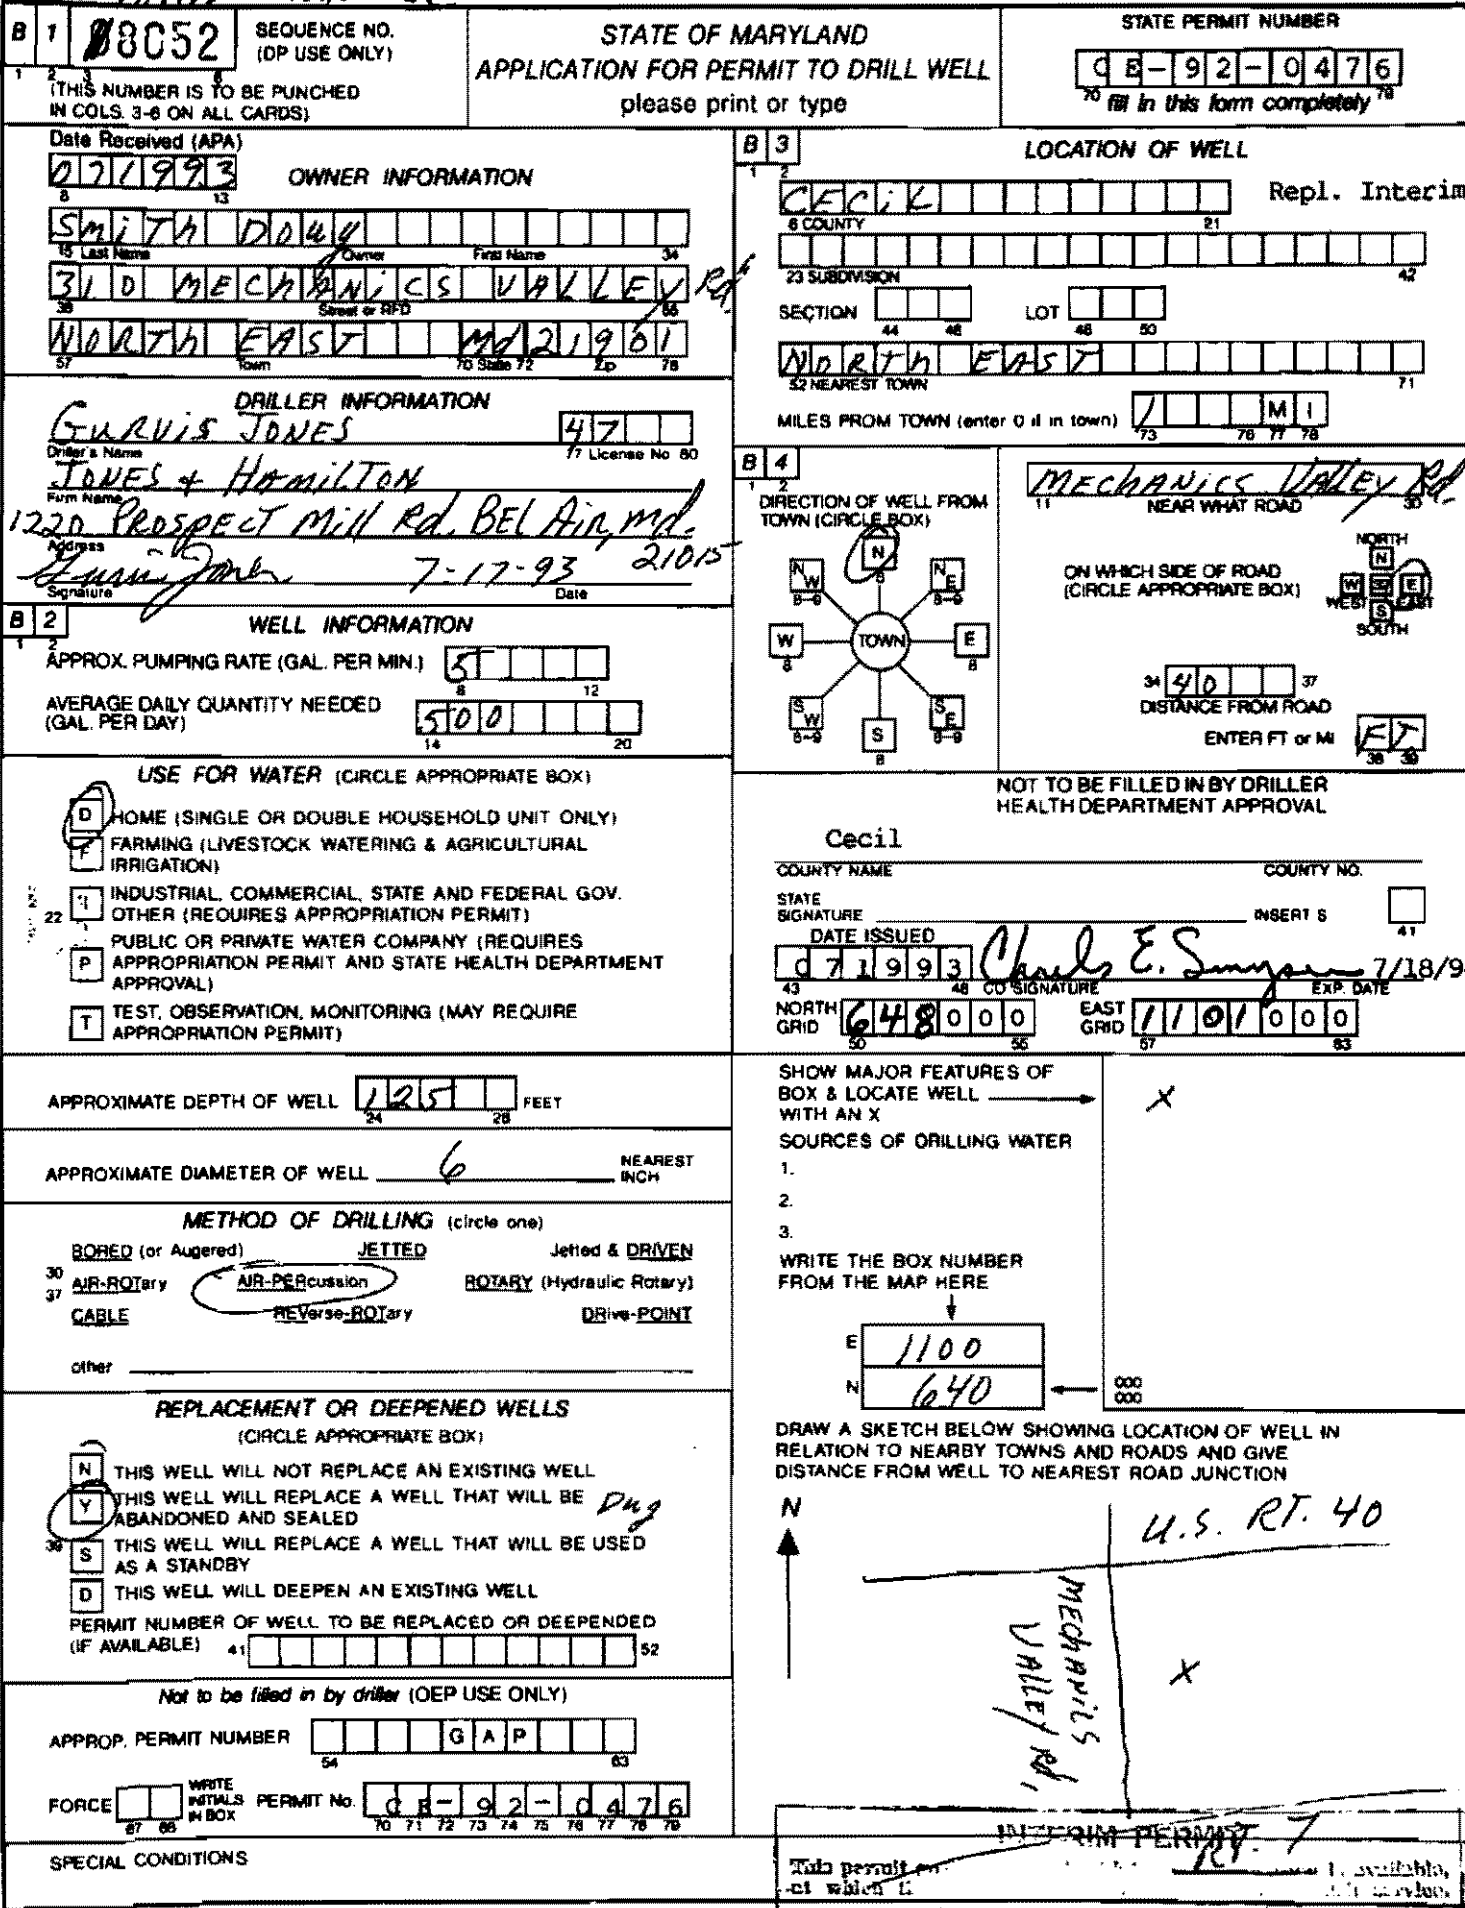 B 1
8052
SEQUENCE NO.
(DP USE ONLY)
1 2 3 6
(THIS NUMBER IS TO BE PUNCHED
IN COLS. 3-6 ON ALL CARDS)
STATE OF MARYLAND
APPLICATION FOR PERMIT TO DRILL WELL
please print or type
STATE PERMIT NUMBER
CE-92-0476
70 fill in this form completely 79
Date Received (APA)
071993
8 13
OWNER INFORMATION
SmiTh Doug
15 Last Name Owner First Name 34
310 MEChANiCS VALLEY Rd
36 Street or RFD 55
NORTh EAST Md 21901
57 Town 70 State 72 Zip 76
DRILLER INFORMATION
GURViS JONES 47
Driller's Name 77 License No 80
JONES + HAMiLTON
Firm Name
1220 PROSPECT Mill Rd. BEL AiR, md.
21015
Address
7-17-93
Signature Date
B 2
1 2
WELL INFORMATION
APPROX. PUMPING RATE (GAL. PER MIN.) 5
8 12
AVERAGE DAILY QUANTITY NEEDED
(GAL. PER DAY) 500
14 20
USE FOR WATER (CIRCLE APPROPRIATE BOX)
D HOME (SINGLE OR DOUBLE HOUSEHOLD UNIT ONLY)
F FARMING (LIVESTOCK WATERING & AGRICULTURAL
IRRIGATION)
22 I INDUSTRIAL, COMMERCIAL, STATE AND FEDERAL GOV.
OTHER (REQUIRES APPROPRIATION PERMIT)
P PUBLIC OR PRIVATE WATER COMPANY (REQUIRES
APPROPRIATION PERMIT AND STATE HEALTH DEPARTMENT
APPROVAL)
T TEST, OBSERVATION, MONITORING (MAY REQUIRE
APPROPRIATION PERMIT)
APPROXIMATE DEPTH OF WELL 125 FEET
24 28
APPROXIMATE DIAMETER OF WELL 6 NEAREST
INCH
METHOD OF DRILLING (circle one)
BORED (or Augered) JETTED Jetted & DRIVEN
30 AIR-ROTary AIR-PERcussion ROTARY (Hydraulic Rotary)
37
CABLE REVerse-ROTary DRive-POINT
other
REPLACEMENT OR DEEPENED WELLS
(CIRCLE APPROPRIATE BOX)
N THIS WELL WILL NOT REPLACE AN EXISTING WELL
Y THIS WELL WILL REPLACE A WELL THAT WILL BE
ABANDONED AND SEALED Dug
39 S THIS WELL WILL REPLACE A WELL THAT WILL BE USED
AS A STANDBY
D THIS WELL WILL DEEPEN AN EXISTING WELL
PERMIT NUMBER OF WELL TO BE REPLACED OR DEEPENDED
(IF AVAILABLE) 41 52
Not to be filled in by driller (OEP USE ONLY)
APPROP. PERMIT NUMBER GAP
54 63
FORCE WRITE
INITIALS
IN BOX PERMIT No. CE-92-0476
67 68 70 71 72 73 74 75 76 77 78 79
SPECIAL CONDITIONS
B 3
1 2
LOCATION OF WELL
CECiL Repl. Interim
8 COUNTY 21
23 SUBDIVISION 42
SECTION LOT
44 46 48 50
NORTh EAST
52 NEAREST TOWN 71
MILES FROM TOWN (enter 0 if in town) 1 MI
73 76 77 78
B 4
1 2
DIRECTION OF WELL FROM
TOWN (CIRCLE BOX)
N
8
NW NE
8-9 8-9
W TOWN E
8 8
SW SE
8-9 8-9
S
8
MEChANiCS VALLEY Rd.
11 NEAR WHAT ROAD 30
ON WHICH SIDE OF ROAD
(CIRCLE APPROPRIATE BOX)
NORTH
N
W E
WEST EAST
S
SOUTH
34 40 37
DISTANCE FROM ROAD
ENTER FT or MI FT
38 39
NOT TO BE FILLED IN BY DRILLER
HEALTH DEPARTMENT APPROVAL
Cecil
COUNTY NAME COUNTY NO.
STATE
SIGNATURE INSERT S
41
DATE ISSUED
071993 Charles E. 7/18/9
43 48 CO SIGNATURE EXP. DATE
NORTH
GRID 648000 EAST
GRID 1101000
50 55 57 63
SHOW MAJOR FEATURES OF
BOX & LOCATE WELL
WITH AN X
X
SOURCES OF DRILLING WATER
1.
2.
3.
WRITE THE BOX NUMBER
FROM THE MAP HERE
E 1100
N 640
000
000
DRAW A SKETCH BELOW SHOWING LOCATION OF WELL IN
RELATION TO NEARBY TOWNS AND ROADS AND GIVE
DISTANCE FROM WELL TO NEAREST ROAD JUNCTION
N
U.S. RT. 40
MEChANiCS
VALLEY Rd,
X
RT. 7
INTERIM PERMIT
This permit
at which available,